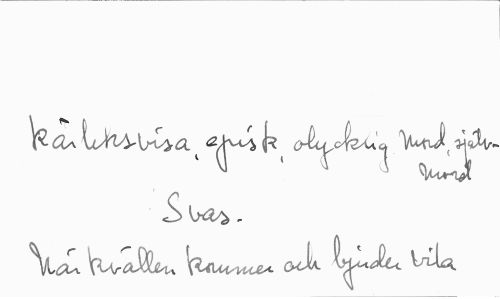 Kärleksvisa, episk, olycklig Mord, själv-
mord
Svas.
När kvällen kommer och bjuder vila